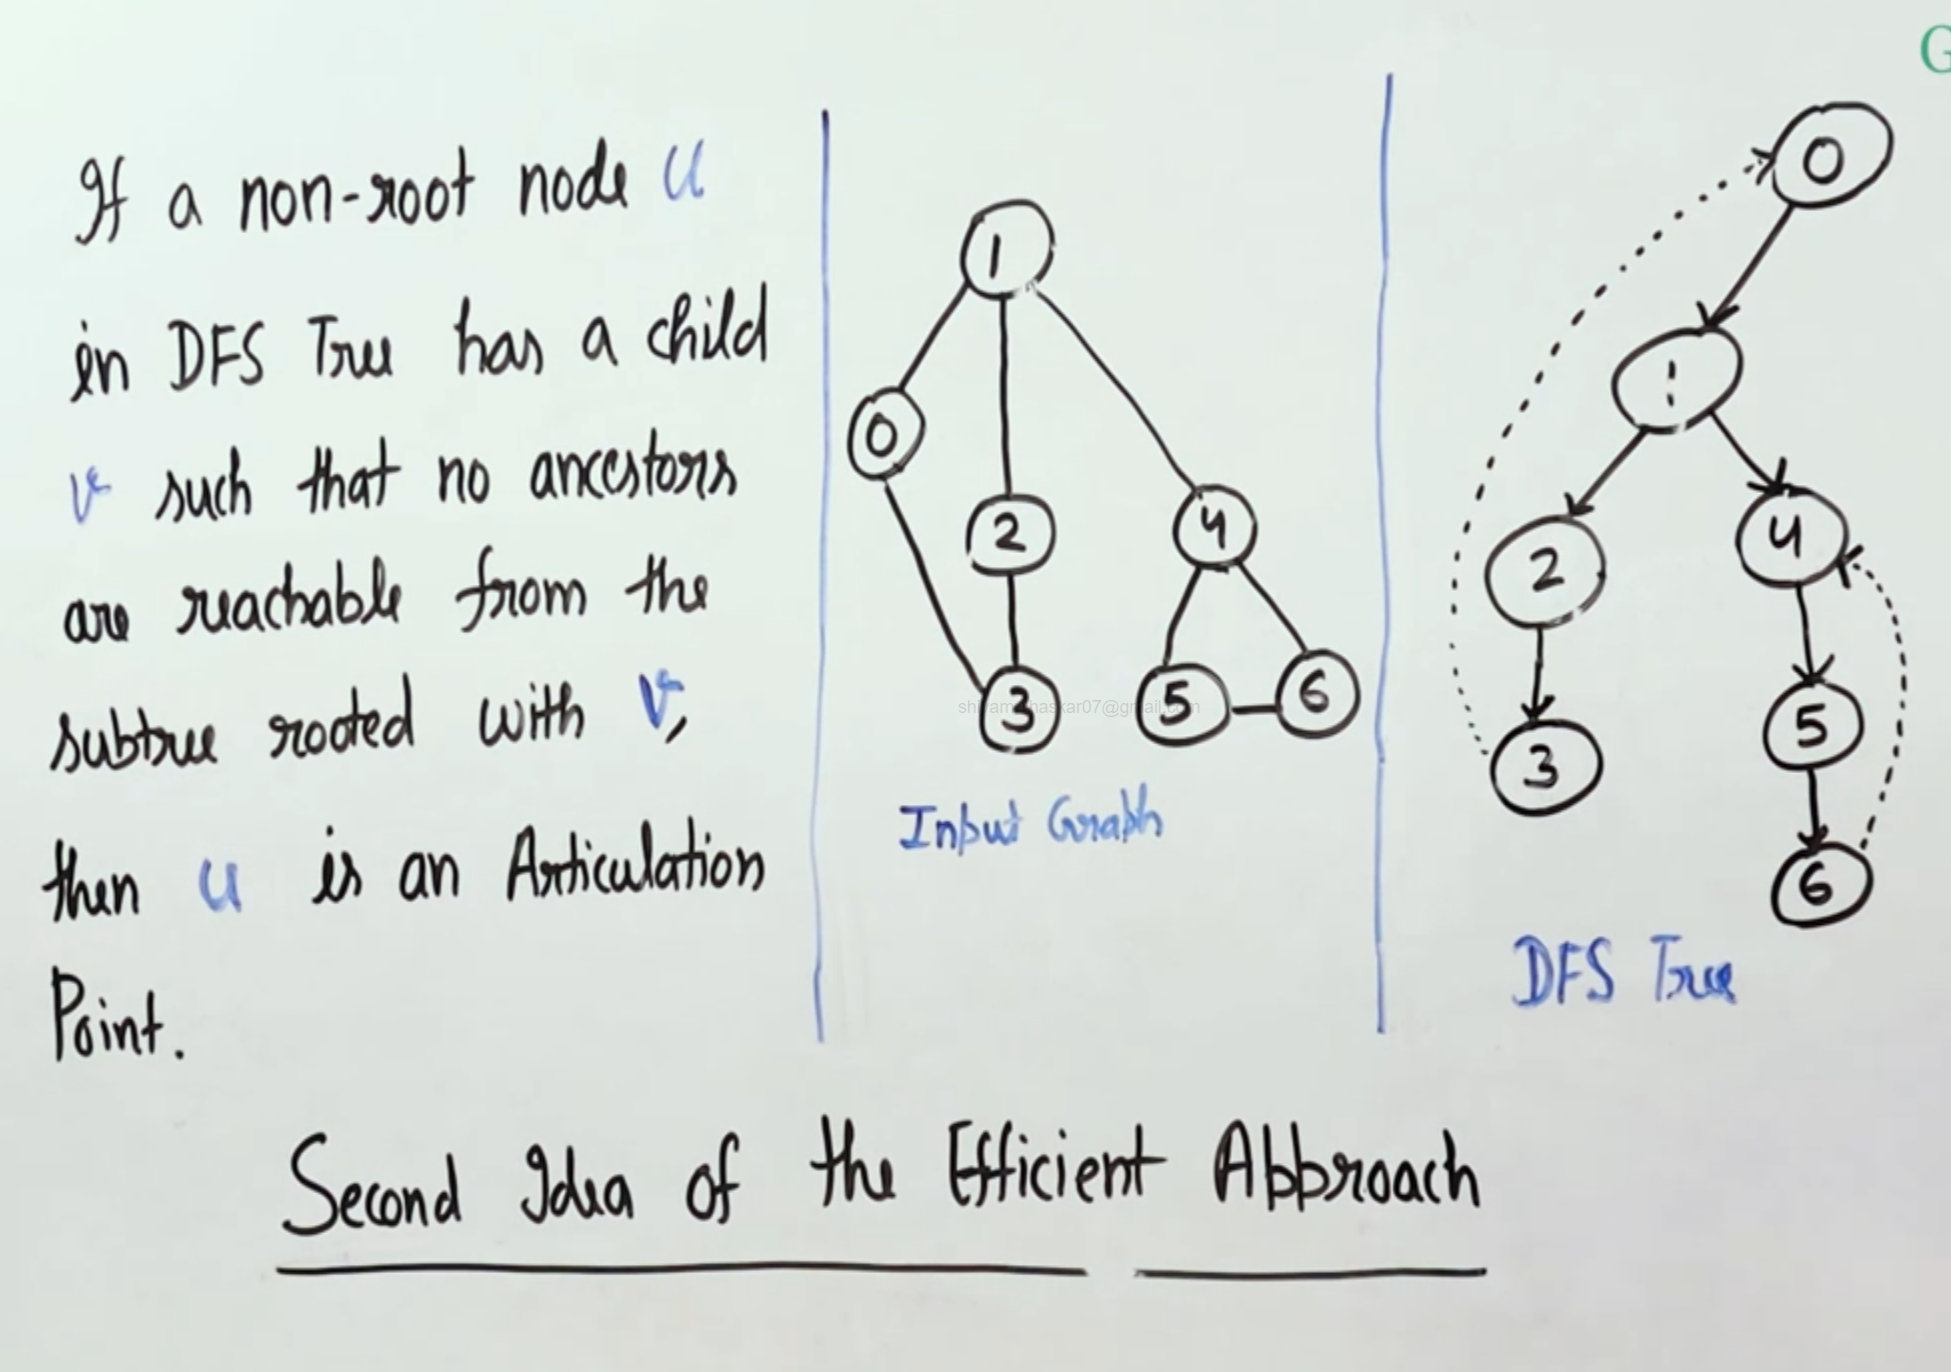 G
If a non-root node u
in DFS Tree has a child
v such that no ancestors
are reachable from the
subtree rooted with v,
then u is an Articulation
Point.
1
0
2
4
3
5
6
Input Graph
0
1
2
4
5
3
6
DFS Tree
Second Idea of the Efficient Approach